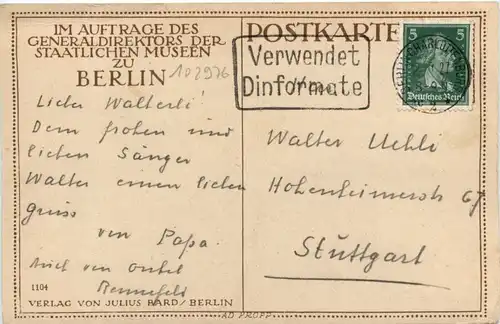 IM AUFTRAGE DES
GENERALDIREKTORS DER
STAATLICHEN MUSEEN
ZU
BERLIN
102926
Lieber Walterli!
Dem frohen und
lieben Sänger
Walter einen lieben
Gruss
von Papa.
Auch von Onkel
1104
VERLAG VON JULIUS BARD/BERLIN
POSTKARTE
Verwendet
Dinformate
5 5
Deutsches Reich
Walter Uehli
Hohenheimerstr 67
Stuttgart